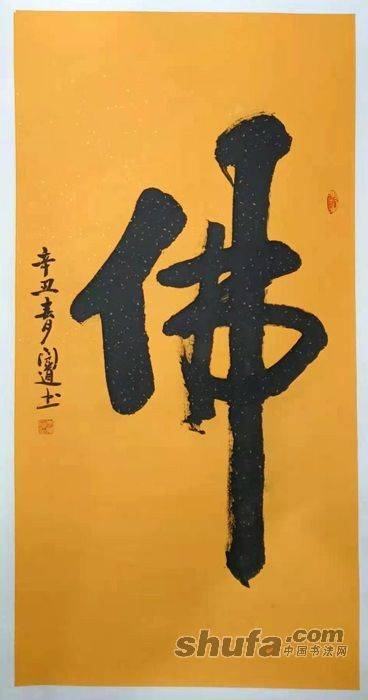 佛
辛丑春月道书
shufa.com
中国书法网